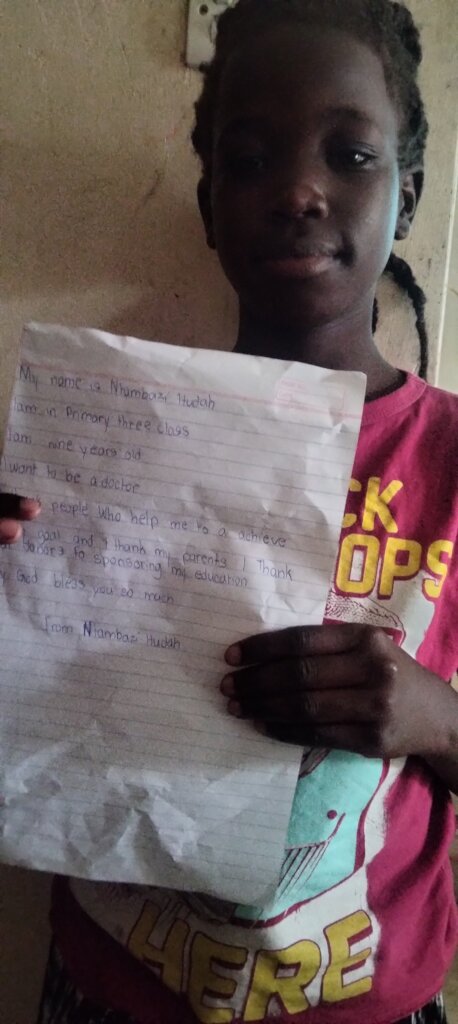 My name is Ntambazi Hudah
I am in Primary three class
I am nine years old
I want to be a doctor
people who help me to a achieve
goal and I thank my parents I thank
donors fo sponsoring my education
God bless you so much
from Ntambazi Hudah
CK
OPS
HERE